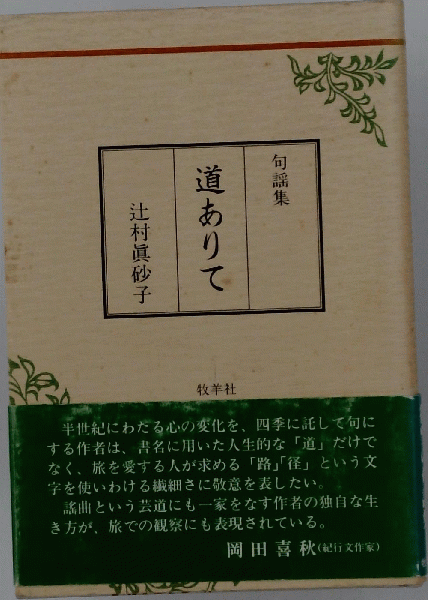 句謡集
道ありて
辻村眞砂子
牧羊社
半世紀にわたる心の変化を、四季に託して句に
する作者は、書名に用いた人生的な「道」だけで
なく、旅を愛する人が求める「路」「径」という文
字を使いわける繊細さに敬意を表したい。
謡曲という芸道にも一家をなす作者の独自な生
き方が、旅での観察にも表現されている。
岡田喜秋(紀行文作家)